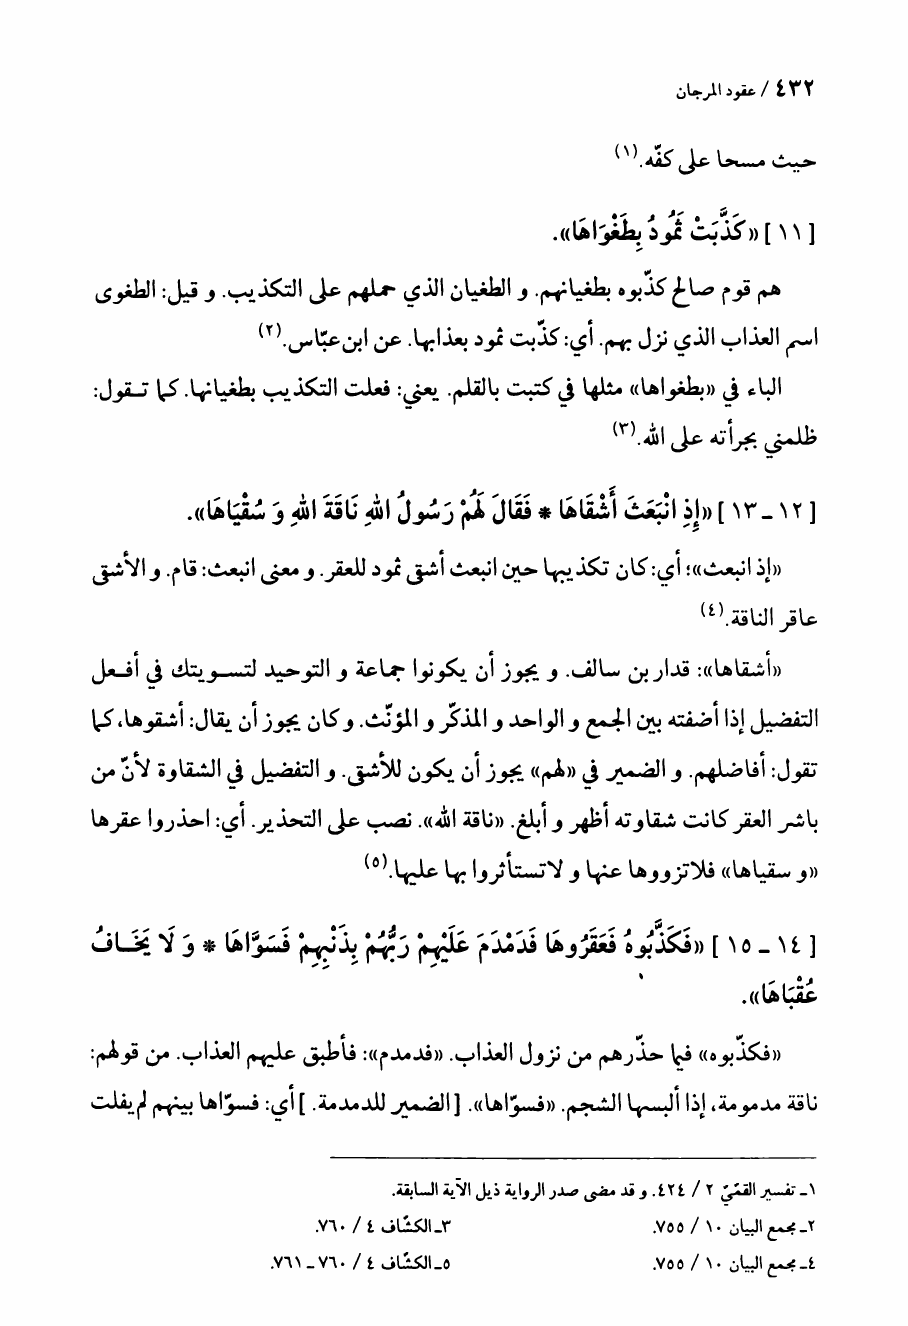 ٤٣٢ / عقود المرجان
حيث مسحا على كفّه.(١)
[ ١١ ] «كَذَّبَتْ ثَمُودُ بِطَغْوَاهَا».
هم قوم صالح كذّبوه بطغيانهم. و الطغيان الذي حملهم على التكذيب. و قيل: الطغوى
اسم العذاب الذي نزل بهم. أي: كذّبت ثمود بعذابها. عن ابن عبّاس.(٢)
الباء في «بطغواها» مثلها في كتبت بالقلم. يعني: فعلت التكذيب بطغيانها. كما تـقول:
ظلمني بجرأته على الله.(٣)
[ ١٢ ـ ١٣ ] «إِذِ انْبَعَثَ أَشْقَاهَا * فَقَالَ لَهُمْ رَسُولُ اللهِ نَاقَةَ اللهِ وَ سُقْيَاهَا».
«إذ انبعث»؛ أي: كان تكذيبها حين انبعث أشقى ثمود للعقر. و معنى انبعث: قام. و الأشقى
عاقر الناقة.(٤)
«أشقاها»: قدار بن سالف. و يجوز أن يكونوا جماعة و التوحيد لتسـويتك في أفـعل
التفضيل إذا أضفته بين الجمع و الواحد و المذكّر و المؤنّث. و كان يجوز أن يقال: أشقوها، كما
تقول: أفاضلهم. و الضمير في «لهم» يجوز أن يكون للأشقى. و التفضيل في الشقاوة لأنّ من
باشر العقر كانت شقاوته أظهر و أبلغ. «ناقة الله». نصب على التحذير. أي: احذروا عقرها
«و سقياها» فلاتزووها عنها و لاتستأثروا بها عليها.(٥)
[ ١٤ ـ ١٥ ] «فَكَذَّبُوهُ فَعَقَرُوهَا فَدَمْدَمَ عَلَيْهِمْ رَبُّهُمْ بِذَنْبِهِمْ فَسَوَّاهَا * وَ لَا يَخَـافُ
عُقْبَاهَا».
«فكذّبوه» فيما حذّرهم من نزول العذاب. «فدمدم»: فأطبق عليهم العذاب. من قولهم:
ناقة مدمومة، إذا ألبسها الشحم. «فسوّاها». [ الضمير للدمدمة. ] أي: فسوّاها بينهم لم يفلت
١ـ تفسير القمّيّ ٢ / ٤٢٤. و قد مضى صدر الرواية ذيل الآية السابقة.
٢ـ مجمع البيان ١٠ / ٧٥٥. ٣ـ الكشّاف ٤ / ٧٦٠.
٤ـ مجمع البيان ١٠ / ٧٥٥. ٥ـ الكشّاف ٤ / ٧٦٠ ـ ٧٦١.